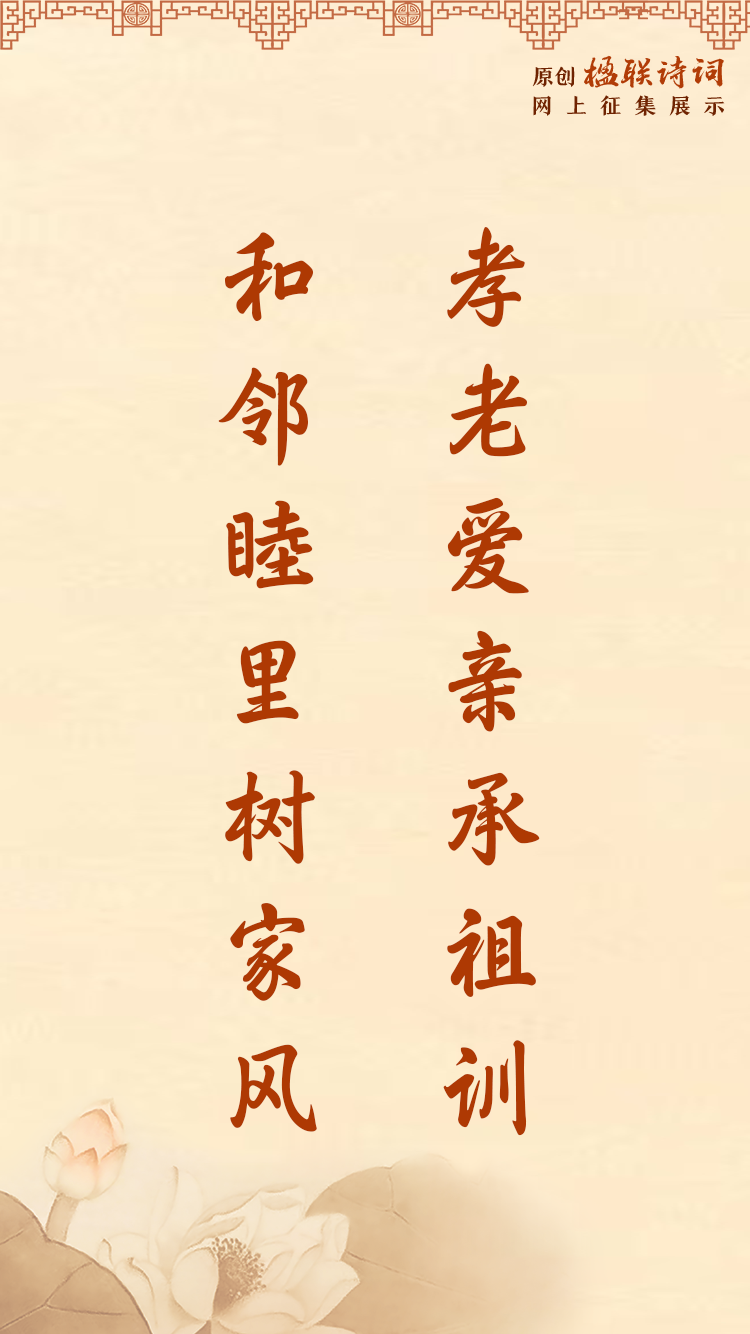 原创 楹联诗词
网上征集展示
孝老爱亲承祖训
和邻睦里树家风